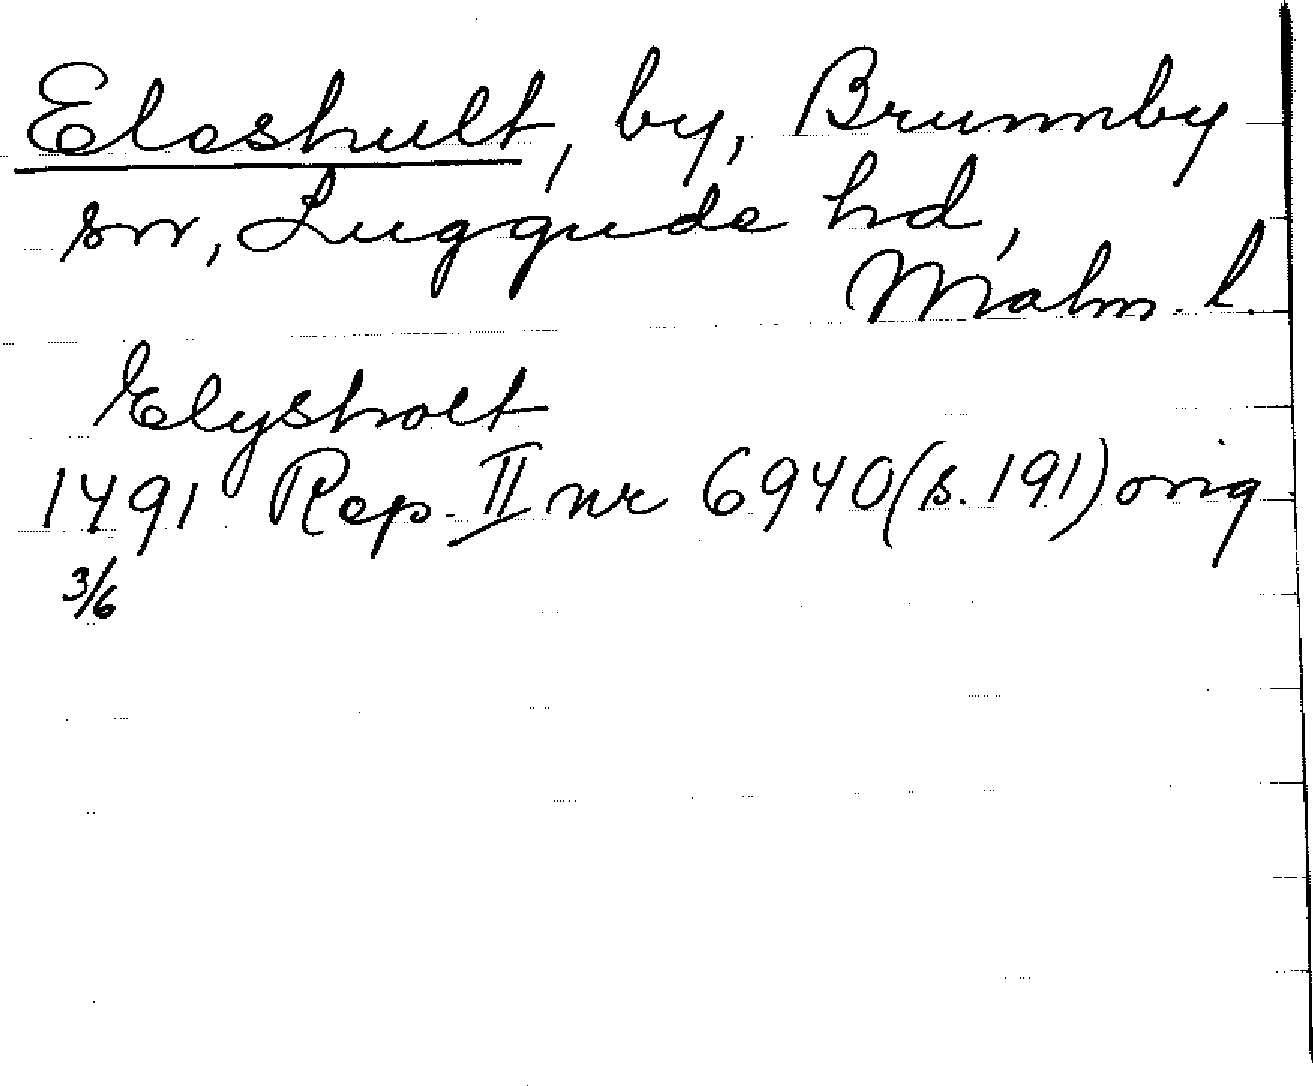 Eleshult, by, Brunnby
sn, Luggude hd,
Malm. l.
Elysholt
1491 Rep. II nr 6940 (s. 191) orig
3/6